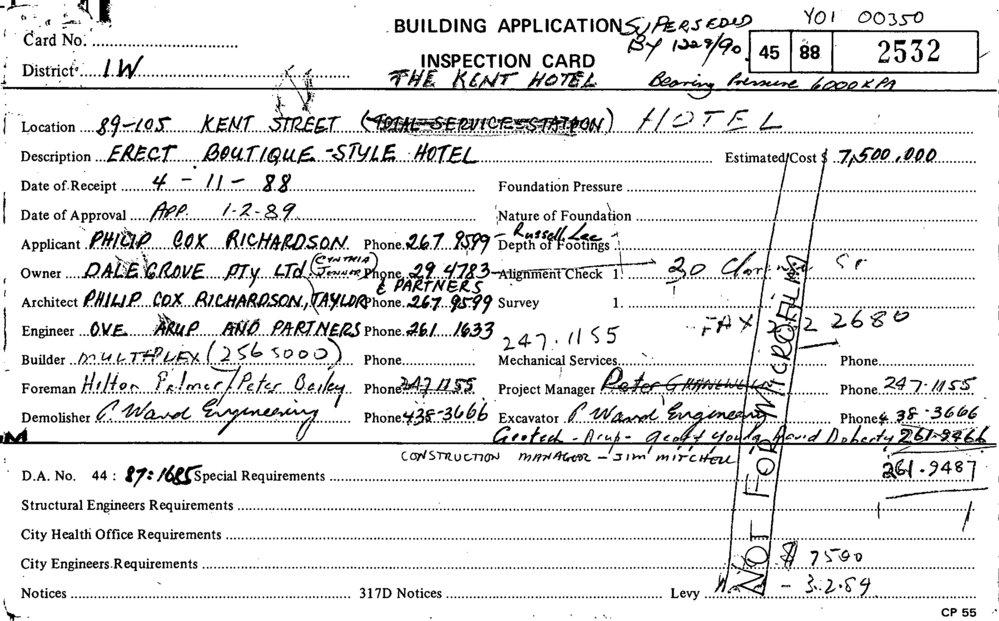 BUILDING APPLICATION SUPERSEDED Y01 00350
Card No. BY 1228/90 45 88 2532
INSPECTION CARD
District IW THE KENT HOTEL Bearing Pressure 6000 KPA
Location 89-105 KENT STREET (TOTAL SERVICE STATION) HOTEL
Description ERECT BOUTIQUE-STYLE HOTEL Estimated Cost $ 7,500,000
Date of Receipt 4-11-88 Foundation Pressure
Date of Approval APP. 1-2-89 Nature of Foundation
Applicant PHILIP COX RICHARDSON Phone. 267 9599 Depth of Footings - Russell Lee
Owner DALEGROVE PTY LTD (CYNTHIA) Phone 29 4783 Alignment Check 1 30
& PARTNERS
Architect PHILIP COX RICHARDSON, TAYLOR Phone. 267.9599 Survey 1
FAX 2680
Engineer OVE ARUP AND PARTNERS Phone. 261 1633 247.1155
Builder MULTIPLEX (256 5000) Phone Mechanical Services Phone
Foreman Hilton Palmer/Peter Bailey Phone 247 1155 Project Manager Peter Phone. 247-1155
Demolisher P Ward Engineering Phone 438-3666 Excavator P Ward Engineering Phone 438-3666
Geotech - Arup - Geoff Young David Doherty 261-9466
CONSTRUCTION MANAGER - JIM MITCHELL
D.A. No. 44 : 87:1685 Special Requirements 261.9487
Structural Engineers Requirements
City Health Office Requirements
City Engineers Requirements $ 7500
Notices 317D Notices Levy - 3.2.89
NOT FOR MICROFILM
CP 55